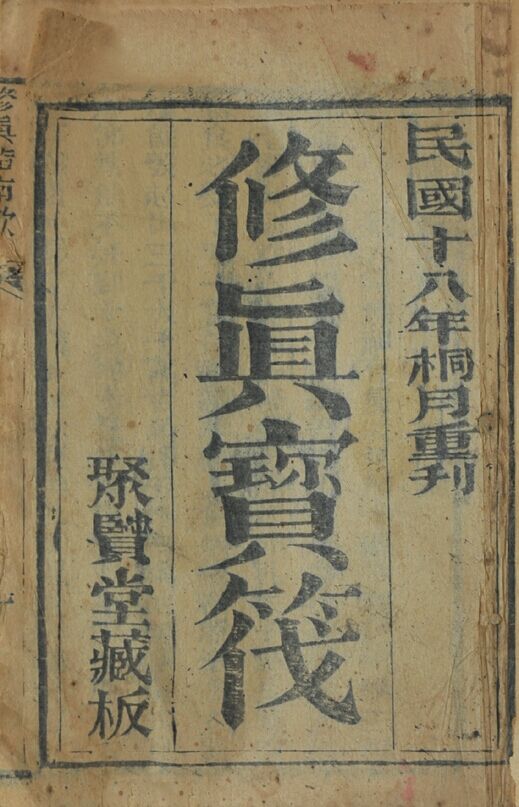 民國十八年桐月重刊
修眞寶筏
聚賢堂藏板